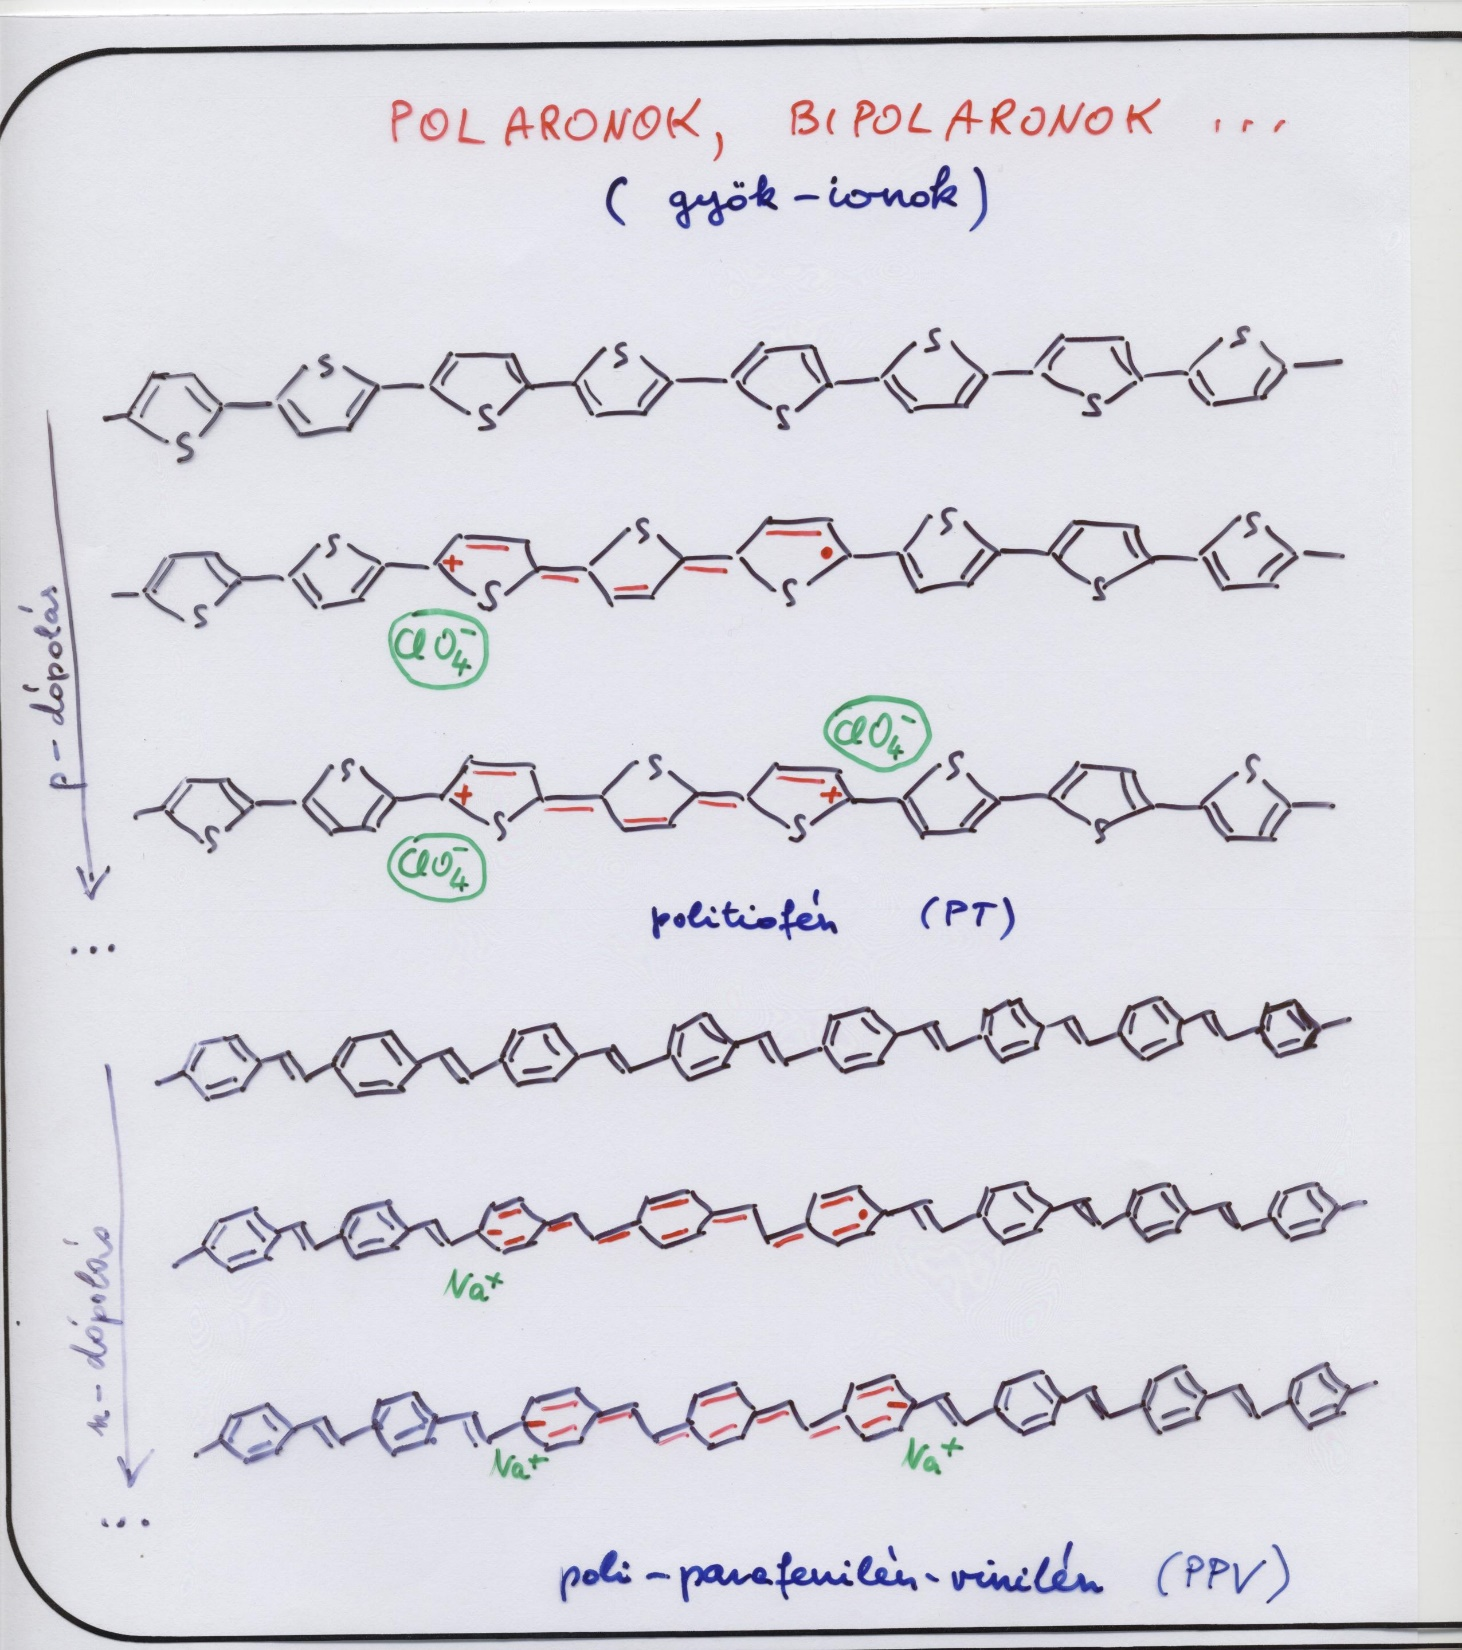 POLARONOK, BIPOLARONOK ...
(gyök-ionok)
S S S S S S S S
p-dópolás
S S + S S S • S S S
ClO₄⁻
ClO₄⁻
S S + S S S + S S S
ClO₄⁻
politiofén (PT)
...
n-dópolás
Na⁺
Na⁺ Na⁺
...
poli-parafenilén-vinilén (PPV)